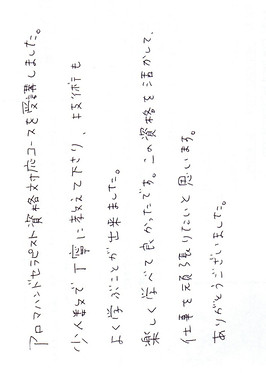 アロマハンドセラピスト資格対応コースを受講しました。
少人数で丁寧に教えて下さり、技術も
よく学ぶことが出来ました。
楽しく学べて良かったです。この資格を活かして、
仕事を頑張りたいと思います。
ありがとうございました。